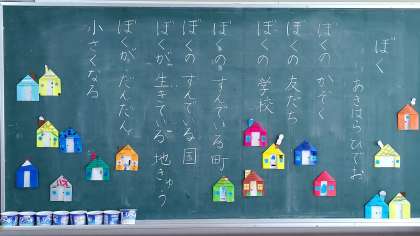 ぼく
あきはらひでお
ぼくのかぞく
ぼくの友だち
ぼくの学校
ぼくのすんでいる町
ぼくのすんでいる国
ぼくが生きている地きゅう
ぼくがだんだん
小さくなる